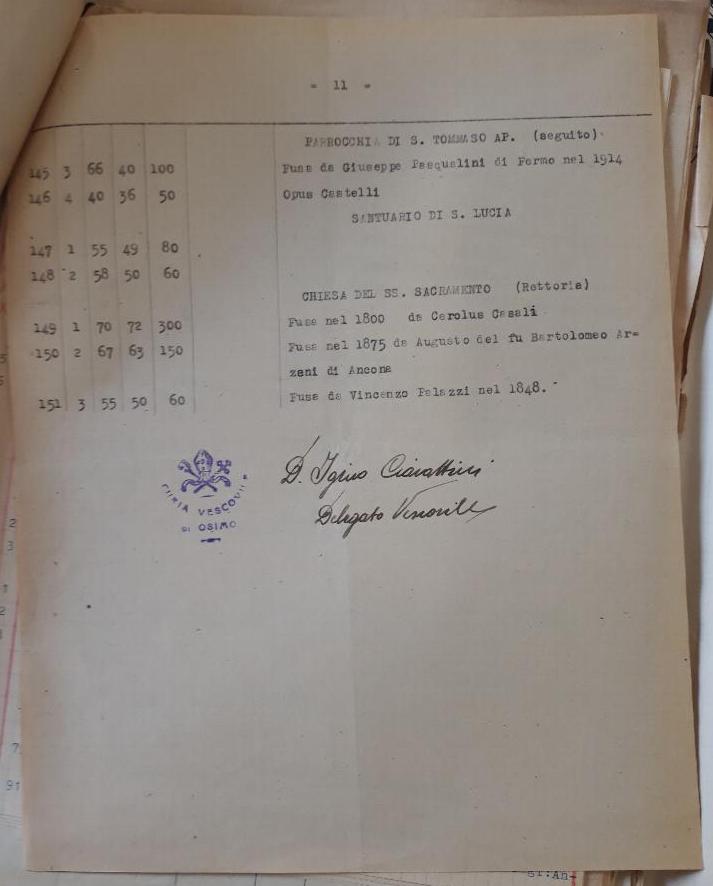 - 11 -
PARROCCHIA DI S. TOMMASO AP. (seguito)
145 3 66 40 100 Fusa da Giuseppe Pasqualini di Fermo nel 1914
146 4 40 36 50 Opus Castelli
SANTUARIO DI S. LUCIA
147 1 55 49 80
148 2 58 50 60
CHIESA DEL SS. SACRAMENTO (Rettoria)
149 1 70 72 300 Fusa nel 1800 da Carolus Casali
150 2 67 63 150 Fusa nel 1875 da Augusto del fu Bartolomeo Ar=
zeni di Ancona
151 3 55 50 60 Fusa da Vincenzo Palazzi nel 1848.
D. Igino Ciavattini
Delegato Vescovile
CURIA VESCOVILE
DI OSIMO